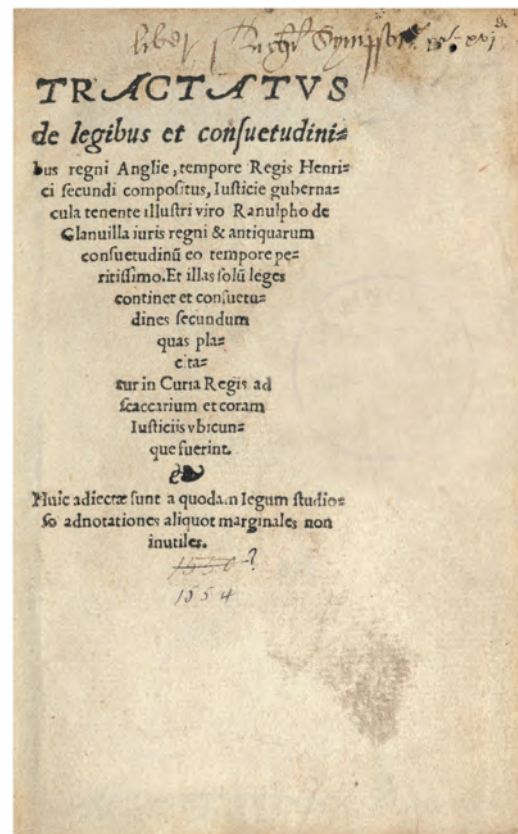 liber
TRACTATVS
de legibus et conſuetudini⸗
bus regni Anglie, tempore Regis Henri⸗
ci ſecundi compoſitus, Iuſticie guberna⸗
cula tenente illuſtri viro Ranulpho de
Glanuilla iuris regni & antiquarum
conſuetudinū eo tempore pe⸗
ritiſſimo. Et illas ſolū leges
continet et conſuetu⸗
dines ſecundum
quas pla⸗
cita⸗
tur in Curia Regis ad
ſcaccarium et coram
Iuſticiis vbicun⸗
que fuerint.
Huic adiectæ ſunt a quodam legum ſtudio⸗
ſo adnotationes aliquot marginales non
inutiles.
1550-?
1554